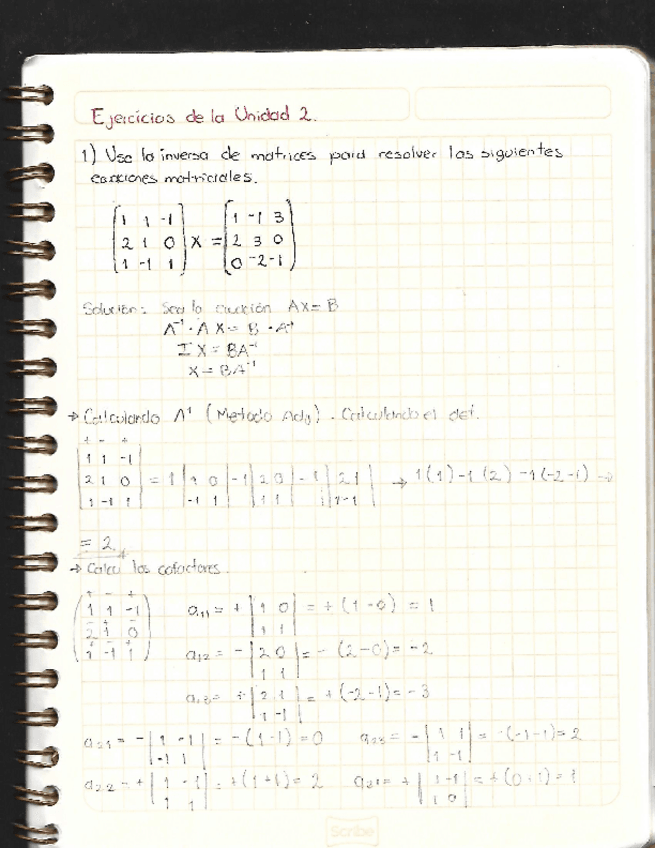 Ejercicios de la Unidad 2.
1) Use la inversa de matrices para resolver las siguientes
ecuaciones matriciales.
1 1 -1   1 -1 3
2 1 0 X = 2 3 0
1 -1 1   0 -2 -1
Solución: Sea la ecuación AX = B
A⁻¹ · A X = B · A⁻¹
I X = BA⁻¹
X = BA⁻¹
→ Calculando A⁻¹ (Metodo Adj). Calculando el det.
+ - +
|1 1 -1|
|2 1 0| = 1 |1 0| -1 |2 0| -1 |2 1| → 1(1) -1(2) -1(-2-1) →
|1 -1 1| |-1 1| |1 1| |1 -1|
= 2
→ Calcu los cofactores.
+ - +
1 1 -1   a₁₁ = + |1 0| = +(1-0) = 1
- + -   |1 1|
2 1 0
+ - +
1 -1 1   a₁₂ = - |2 0| = -(2-0) = -2
|1 1|
a₁₃ = + |2 1| = +(-2-1) = -3
|1 -1|
a₂₁ = - |1 -1| = -(1-1) = 0   a₂₃ = - |1 1| = -(-1-1) = 2
|-1 1|   |1 -1|
a₂₂ = + |1 -1| = +(1+1) = 2   a₃₁ = + |1 -1| = +(0+1) = 1
|1 1|   |1 0|
Scribe